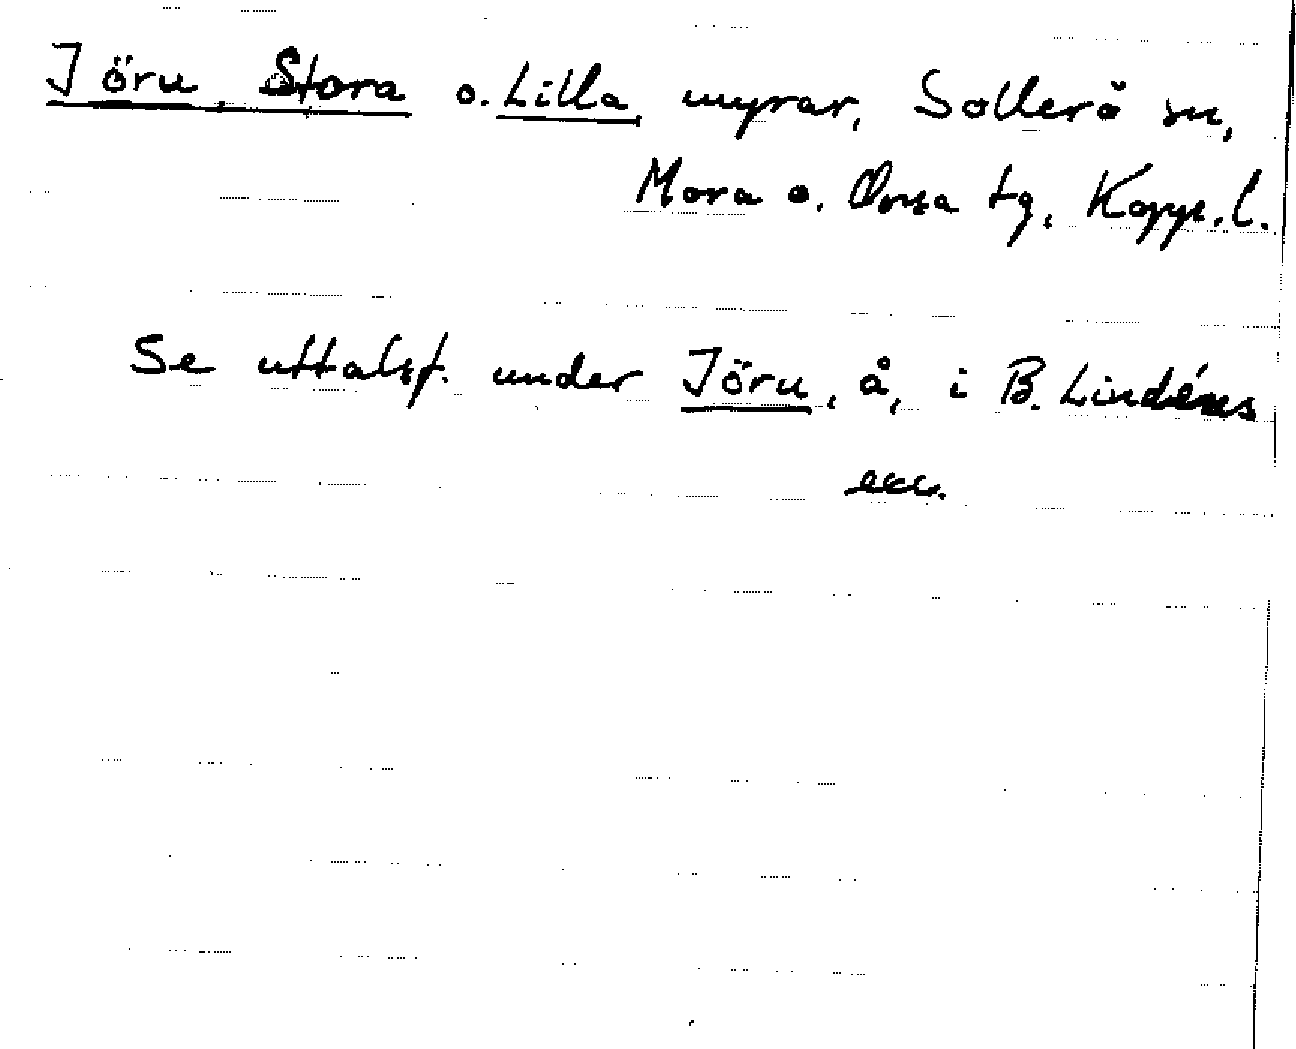 Jöru, Stora o. Lilla myrar, Sollerö sn,
Mora o. Orsa tg, Kopp. l.
Se uttalsf. under Jöru, å, i B. Lindéns
exc.